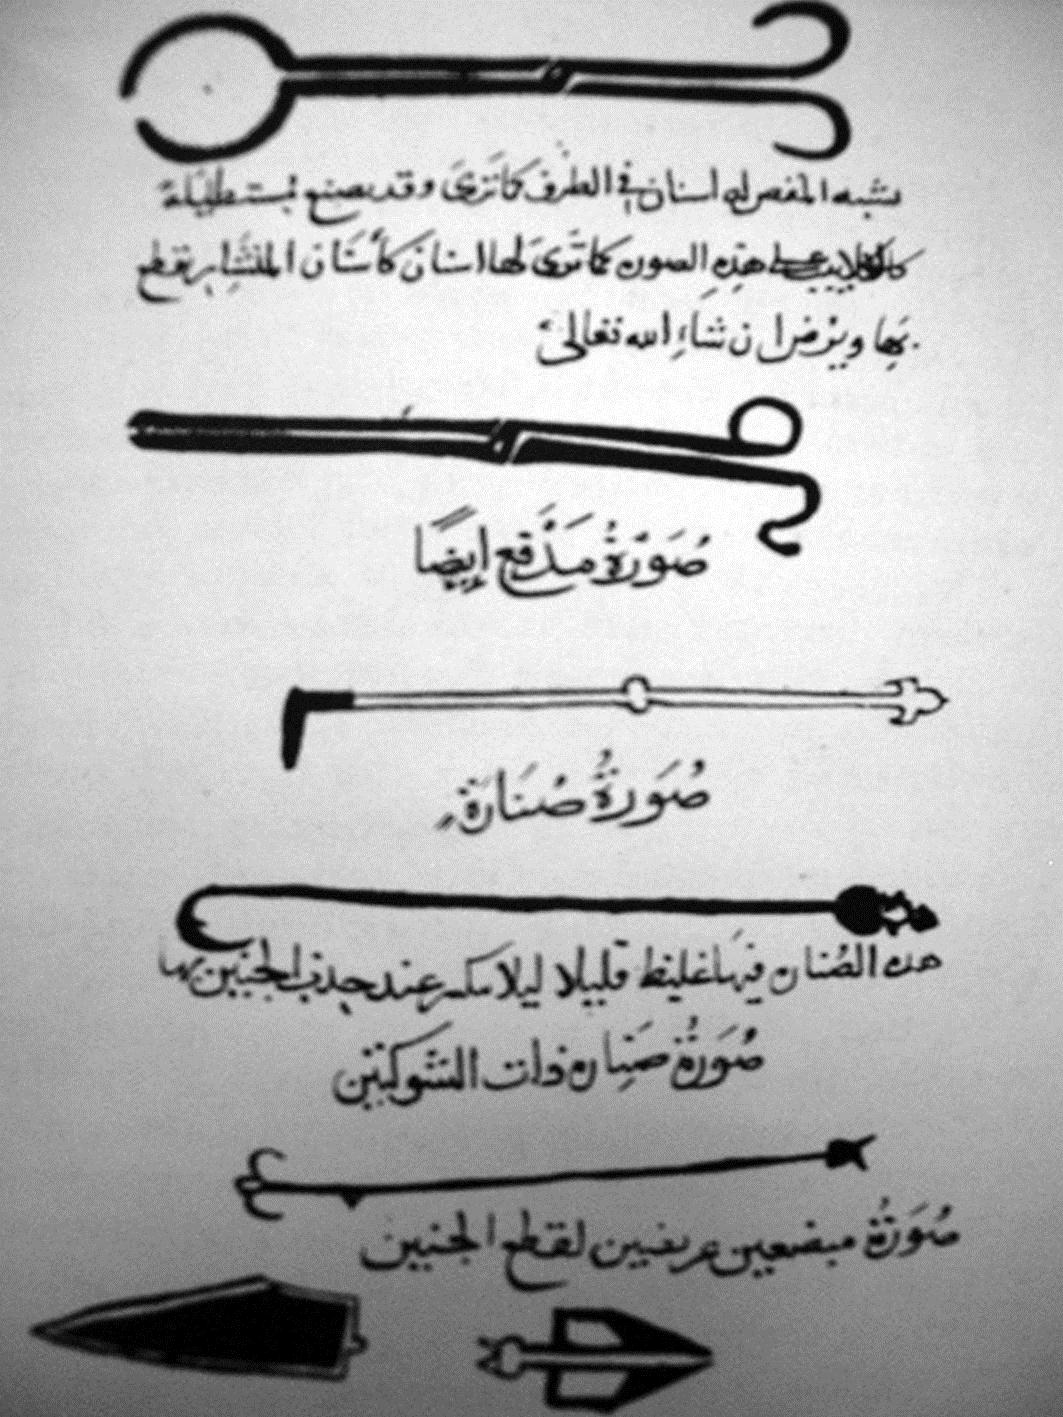 يشبه المقص له اسنان في الطرف كما ترى وقد يصنع مستطيلة
كالكلاليب على هذه الصوره كما ترى لها اسنان كأسنان المنشار يقطع
بها ويرض ان شاء الله تعالى
صُورَةُ مدفع أيضًا
صُورَةُ صُنَارَة
هذه الصُنان فيها غليظ قليلا ليلا تنكسر عند جذب الجنين بها
صُورَةُ صَنِاره ذات الشوكتين
صُورَةُ مبضعين عريضين لقطع الجنين